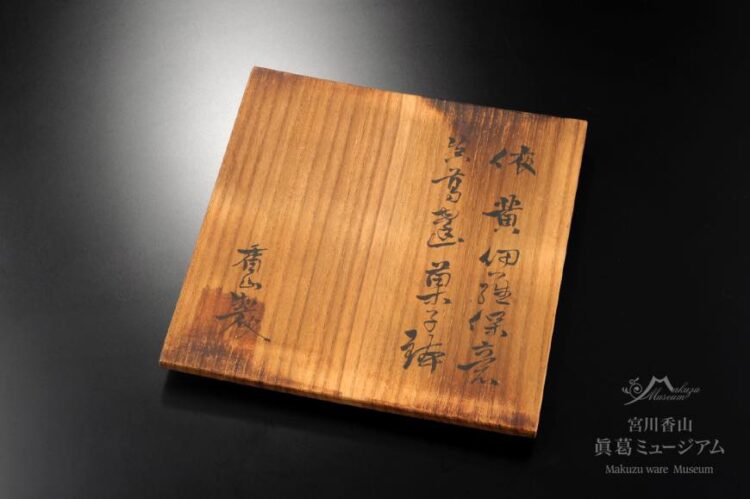 依黄伊羅保意
真葛窯菓子鉢
香山製
Makuzu
Museum
宮川香山
眞葛ミュージアム
Makuzu ware Museum